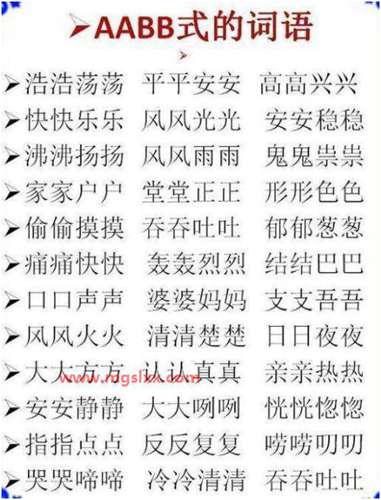 ➢AABB式的词语
➢
➢浩浩荡荡 平平安安 高高兴兴
➢快快乐乐 风风光光 安安稳稳
➢沸沸扬扬 风风雨雨 鬼鬼祟祟
➢家家户户 堂堂正正 形形色色
➢偷偷摸摸 吞吞吐吐 郁郁葱葱
➢痛痛快快 轰轰烈烈 结结巴巴
➢口口声声 婆婆妈妈 支支吾吾
➢风风火火 清清楚楚 日日夜夜
➢大大方方 认认真真 亲亲热热
www.mgslxx.com
➢安安静静 大大咧咧 恍恍惚惚
➢指指点点 反反复复 唠唠叨叨
➢哭哭啼啼 冷冷清清 吞吞吐吐